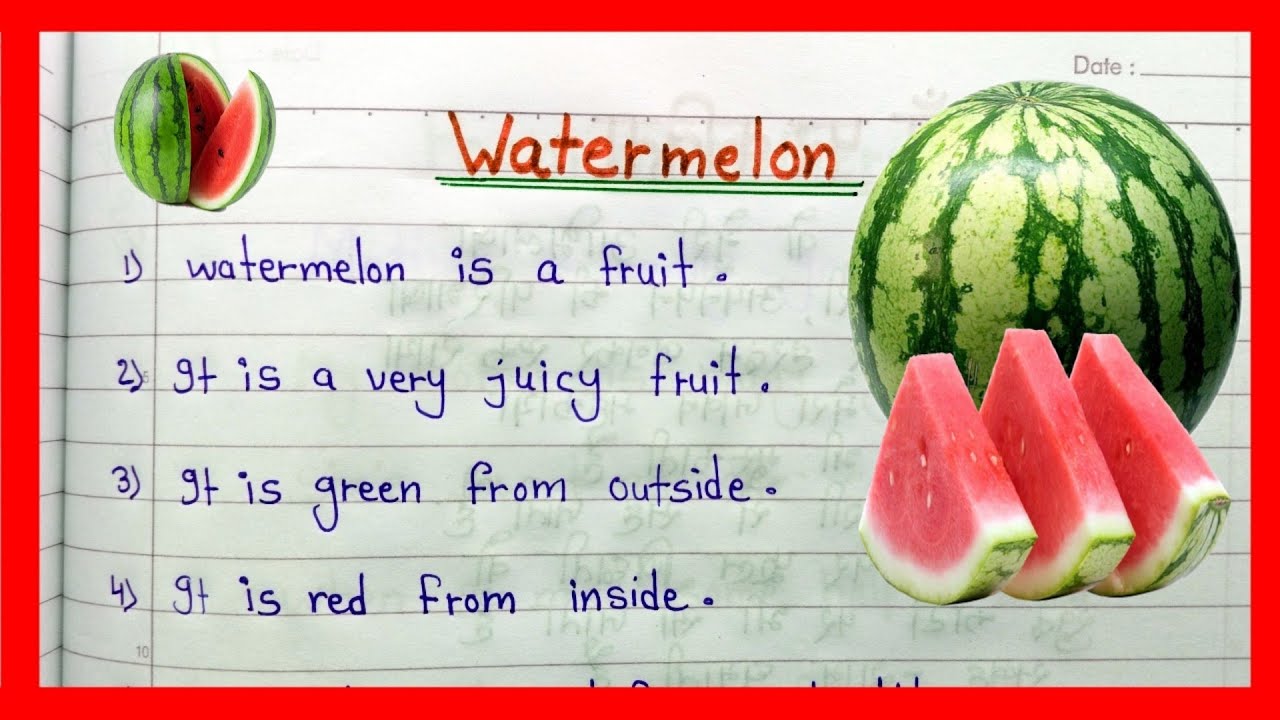 Date :
Watermelon
1) watermelon is a fruit.
2) It is a very juicy fruit.
3) It is green from outside.
4) It is red from inside.
10